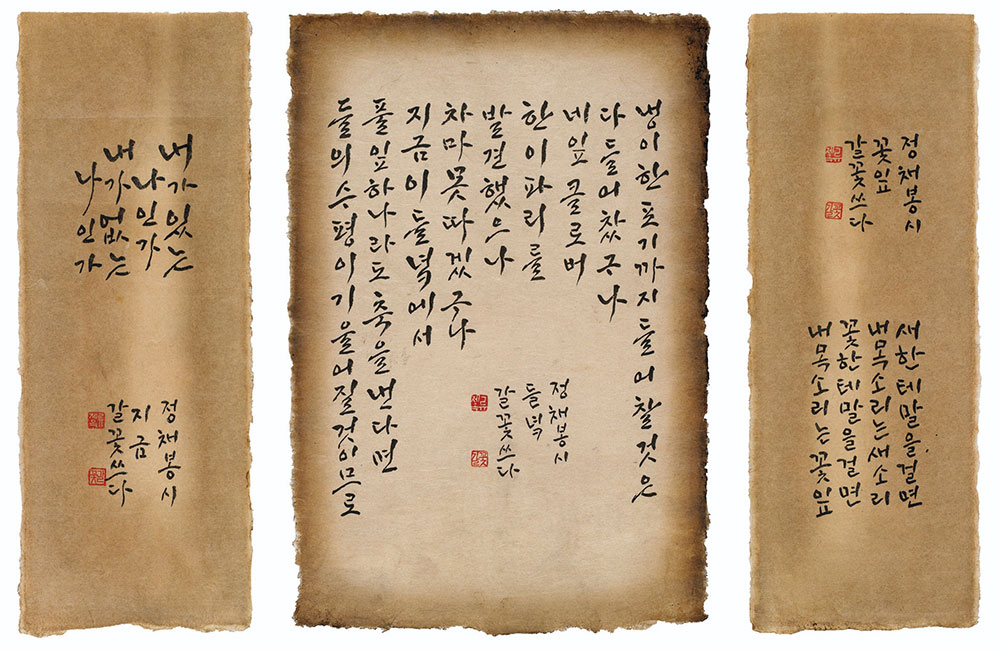 내가있는
나인가
내가없는
나인가
정채봉시
지금
갈꽃쓰다
냉이한포기까지들어찰것은
다들어찼구나
네잎클로버
한이파리를
발견했으나
차마못따겠구나
지금이들녘에서
풀잎하나라도축을낸다면
들의수평이기울어질것이므로
정채봉시
들녘
갈꽃쓰다
정채봉시
꽃잎
갈꽃쓰다
새한테말을걸면
내목소리는새소리
꽃한테말을걸면
내목소리는꽃잎